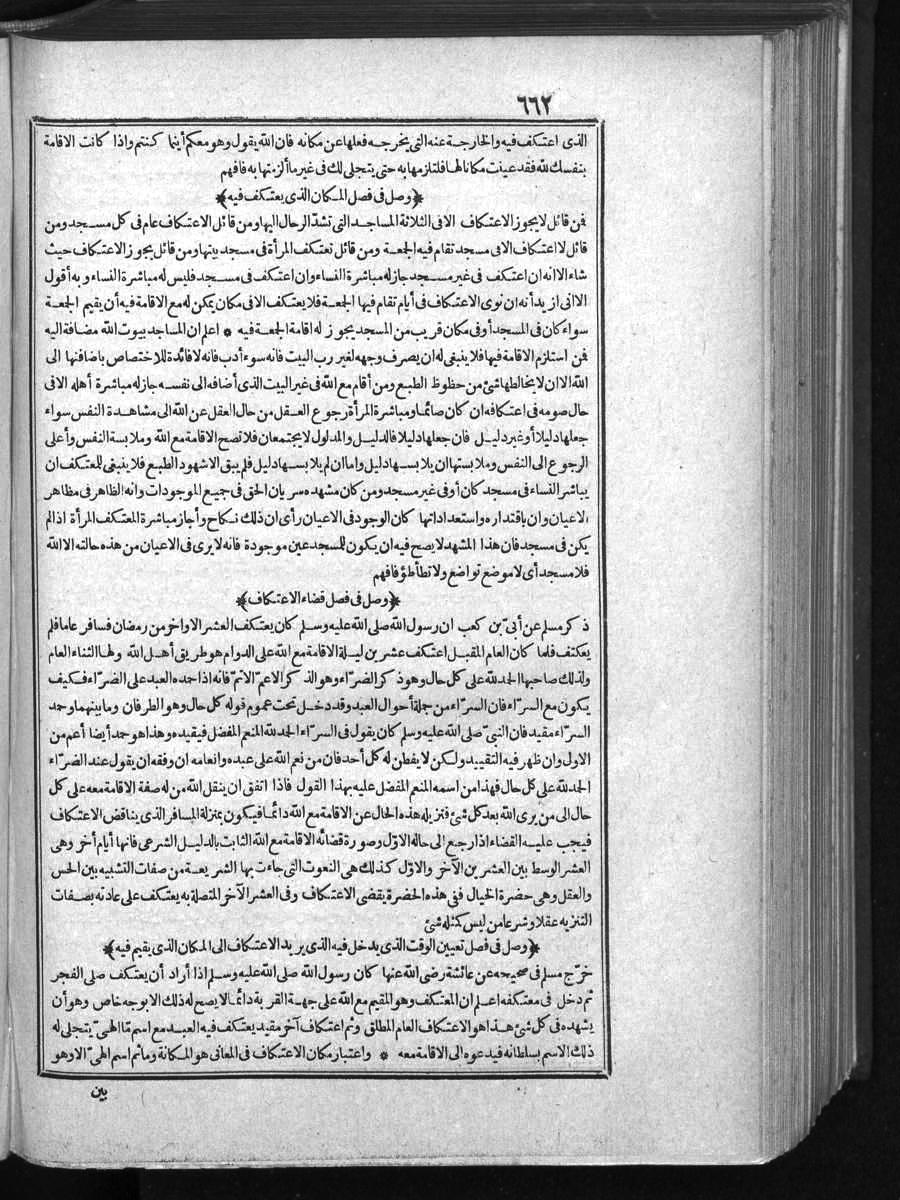 ٦٦٢
الذى اعتكف فيه والخارجة عنه التى يخرجه فعلها عن مكانه فان الله يقول وهو معكم أينما كنتم واذا كانت الاقامة
بنفسك لله فقد عينت مكانا لها فلتلزمها به حتى يتجلى لك فى غير ما ألزمتها به فافهم
﴿وصل فى فصل المكان الذى يعتكف فيه﴾
فمن قائل لا يجوز الاعتكاف الا فى الثلاثة المساجد التى تشدّ الرحال اليها ومن قائل الاعتكاف عام فى كل مسجد ومن
قائل لا اعتكاف الا فى مسجد تقام فيه الجمعة ومن قائل تعتكف المرأة فى مسجد بيتها ومن قائل يجوز الاعتكاف حيث
شاء الا انه ان اعتكف فى غير مسجد جاز له مباشرة النساء وان اعتكف فى مسجد فليس له مباشرة النساء وبه أقول
الا انى أزيد أنه ان نوى الاعتكاف فى أيام تقام فيها الجمعة فلا يعتكف الا فى مكان يمكن له مع الاقامة فيه أن يقيم الجمعة
سواء كان فى المسجد أو فى مكان قريب من المسجد يجوز له اقامة الجمعة فيه * اعلم ان المساجد بيوت الله مضافة اليه
فمن استلزم الاقامة فيها فلا ينبغى له ان يصرف وجهه لغير رب البيت فانه سوء أدب فانه لا فائدة للاختصاص باضافتها الى
الله الا ان لا يخالطها شئ من حظوظ الطبع ومن أقام مع الله فى غير البيت الذى أضافه الى نفسه جاز له مباشرة أهله الا فى
حال صومه فى اعتكافه ان كان صائما ومباشرة المرأة رجوع العقل من حال العقل عن الله الى مشاهدة النفس سواء
جعلها دليلا أو غير دليل فان جعلها دليلا فالدليل والمدلول لا يجتمعان فلا تصح الاقامة مع الله وملابسة النفس وأعلى
الرجوع الى النفس وملابستها ان يلابسها دليل واما ان لم يلابسها دليل فلم يبق الا شهود الطبع فلا ينبغى للمعتكف ان
يباشر النساء فى مسجد كان أو فى غير مسجد ومن كان مشهده سريان الحق فى جميع الموجودات وانه الظاهر فى مظاهر
الاعيان وان باقتداره واستعداداتها كان الوجود فى الاعيان رأى ان ذلك نكاح وأجاز مباشرة المعتكف المرأة اذا لم
يكن فى مسجد فان هذا المشهد لا يصح فيه ان يكون للمسجد عين موجودة فانه لا يرى فى الاعيان من هذه حالته الا الله
فلا مسجد أى لا موضع تواضع ولا تطأطؤ فافهم
﴿وصل فى فصل قضاء الاعتكاف﴾
ذكر مسلم عن أبىّ بن كعب ان رسول الله صلى الله عليه وسلم كان يعتكف العشر الاواخر من رمضان فسافر عاما فلم
يعكتف فلما كان العام المقبل اعتكف عشرين ليلة الاقامة مع الله على الدوام هو طريق أهل الله ولها الثناء العام
ولذلك صاحبها الحمد لله على كل حال وهو ذكر الضرّاء وهو الذكر الاعمّ الاتمّ فانه اذا حمده العبد على الضرّاء فكيف
يكون مع السرّاء فان السرّاء من جملة أحوال العبد وقد دخل تحت عموم قوله كل حال وهو الطرفان وما بينهما وحمد
السرّاء مقيد فان النبىّ صلى الله عليه وسلم كان يقول فى السرّاء الحمد لله المنعم المفضل فيقيده وهذا هو حمد أيضا أعم من
الاول وان ظهر فيه التقييد ولكن لا يفطن له كل أحد فان من نعم الله على عبده وانعامه ان وفقه ان يقول عند الضرّاء
الحمد لله على كل حال فهذا من اسمه المنعم المفضل عليه بهذا القول فاذا اتفق ان ينقل الله من له صفة الاقامة معه على كل
حال الى من يرى الله بعد كل شئ فتزيله هذه الحال عن الاقامة مع الله دائما فيكون بمنزلة المسافر الذى يناقض الاعتكاف
فيجب عليه القضاء اذا رجع الى حاله الاوّل وصورة قضائه الاقامة مع الله الثابت بالدليل الشرعى فانها أيام أخر وهى
العشر الوسط بين العشرين الآخر والاوّل كذلك هى النعوت التى جاءت بها الشريعة من صفات التشبيه بين الحس
والعقل وهى حضرة الخيال ففى هذه الحضرة يقضى الاعتكاف وفى العشر الآخر المتصلة به يعتكف على عادته بصفات
التنزيه عقلا وشرعا من ليس كمثله شئ
﴿وصل فى فصل تعيين الوقت الذى يدخل فيه الذى يريد الاعتكاف الى المكان الذى يقيم فيه﴾
خرّج مسلم فى صحيحه عن عائشة رضى الله عنها كان رسول الله صلى الله عليه وسلم اذا أراد أن يعتكف صلى الفجر
ثم دخل فى معتكفه اعلم ان المعتكف وهو المقيم مع الله على جهة القربة دائما لا يصح له ذلك الا بوجه خاص وهو أن
يشهده فى كل شئ هذا هو الاعتكاف العام المطلق وثم اعتكاف آخر مقيد يعتكف فيه العبد مع اسم مّا الهىّ يتجلى له
ذلك الاسم بسلطانه فيدعوه الى الاقامة معه * واعتبار مكان الاعتكاف فى المعانى هو المكانة وما ثم اسم الهىّ الا وهو
بين